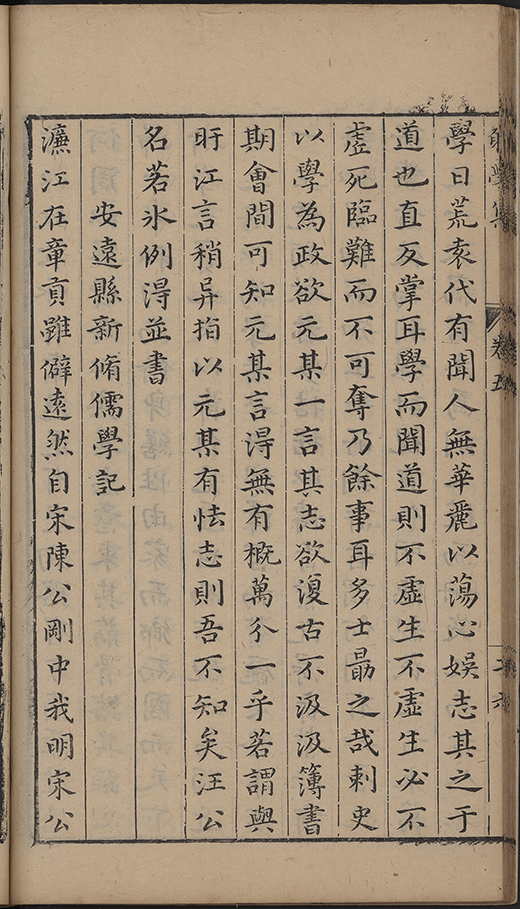 學集
卷五
二六
學日荒袁代有聞人無華麗以蕩心娛志其之于
道也直反掌耳學而聞道則不虛生不虛生必不
虛死臨難而不可奪乃餘事耳多士勗之哉刺史
以學為政欲元某一言其志欲復古不汲汲簿書
期會間可知元某言得無有概萬分一乎若謂與
盱江言稍异指以元某有怯志則吾不知矣汪公
名若氷例得並書
安遠縣新脩儒學記
濂江在章貢雖僻遠然自宋陳公剛中我明宋公